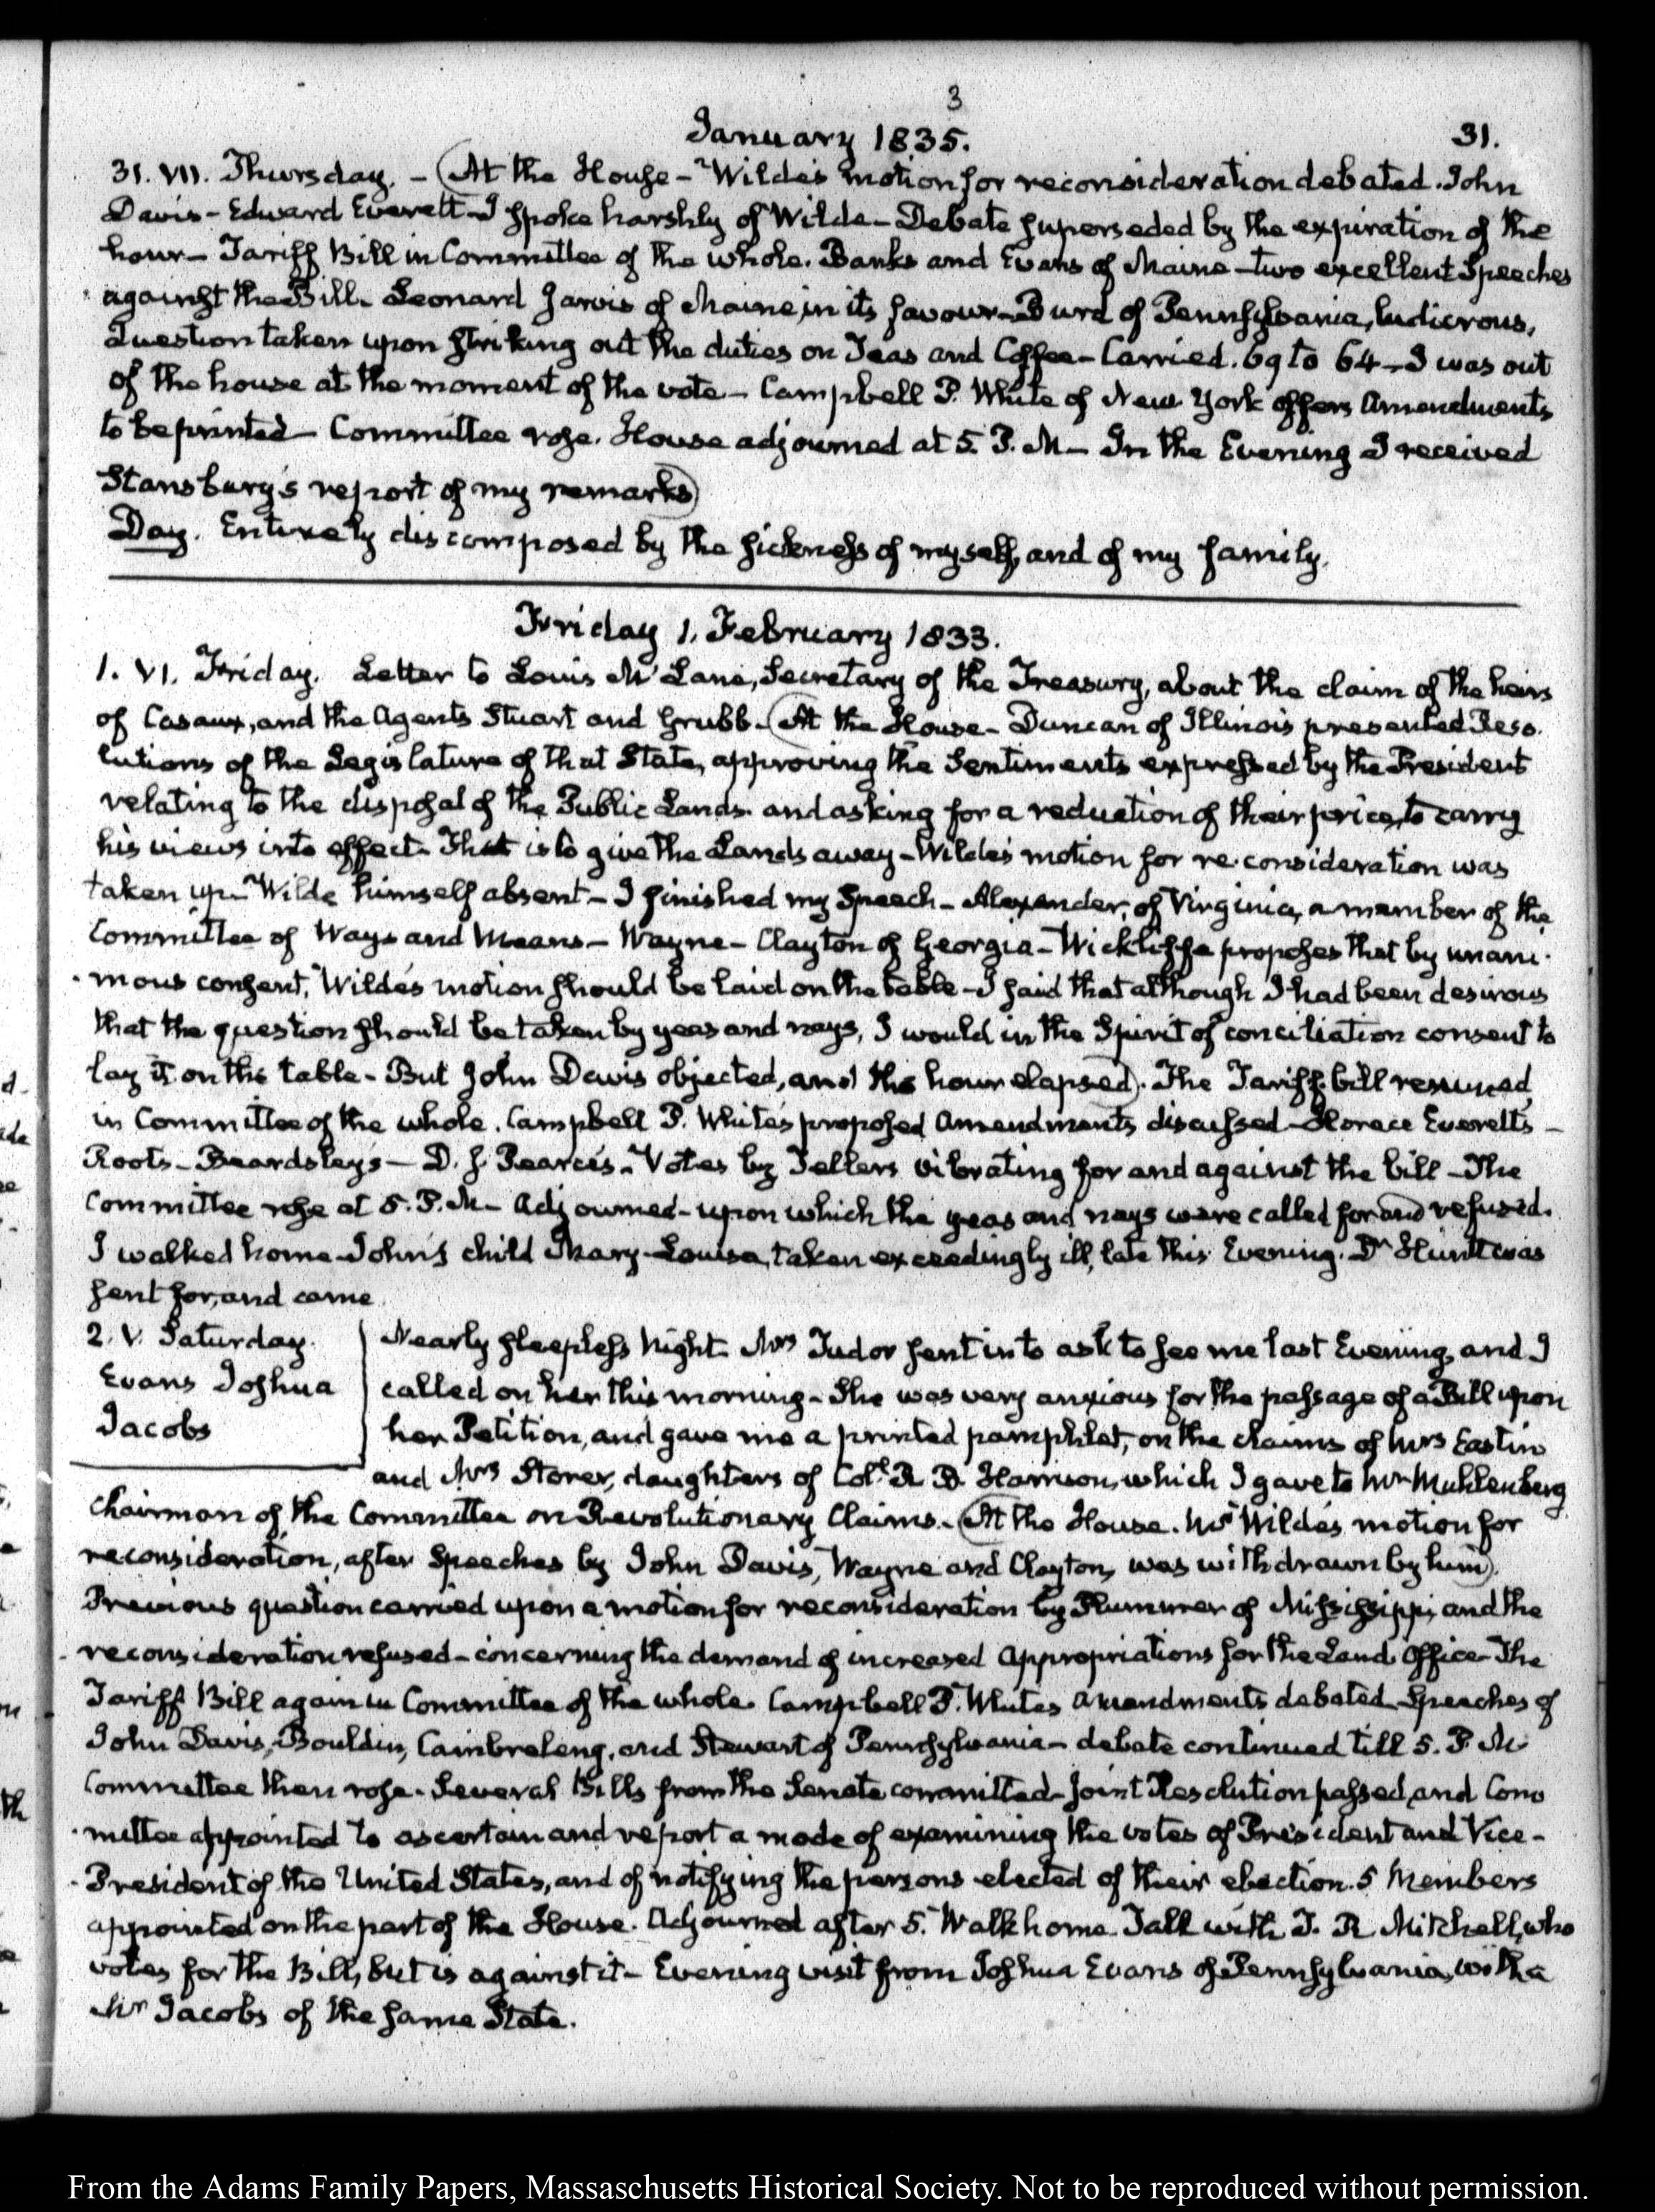 3
January 1835.
31.
31. VII. Thursday. – (At the House – Wilde's motion for reconsideration debated. John
Davis – Edward Everett – I spoke harshly of Wilde – Debate superseded by the expiration of the
hour – Tariff Bill in Committee of the whole. Banks and Evans of Maine – two excellent Speeches
against the Bill. Leonard Jarvis of Maine, in its favour – Burd of Pennsylvania, ludicrous,
Question taken upon striking out the duties on Teas and Coffee – Carried. 69 to 64 – I was out
of the house at the moment of the vote – Campbell P. White of New York offers Amendments
to be printed – Committee rose. House adjourned at 5. P.M – In the Evening I received
Stansbury's report of my remarks)
Day. Entirely discomposed by the sickness of myself, and of my family.
Friday 1. February 1833.
1. VI. Friday. Letter to Louis McLane, Secretary of the Treasury, about the claim of the heirs
of Casaux, and the Agents Stuart and Grubb – (At the House – Duncan of Illinois presented Reso.
lutions of the Legislature of that State, approving the Sentiments expressed by the President
relating to the disposal of the Public Lands. and asking for a reduction of their price, to carry
his views into effect. That is to give the Lands away – Wilde's motion for re-consideration was
taken up – Wilde himself absent – I finished my Speech – Alexander, of Virginia, a member of the
Committee of Ways and Means – Wayne – Clayton of Georgia – Wickliffe proposes that by unani-
mous consent, Wilde's motion should be laid on the table – I said that although I had been desirous
that the question should be taken by yeas and nays, I would in the Spirit of conciliation consent to
lay it on the table – But John Davis objected, and the hour elapsed). The Tariff bill resumed,
in Committee of the whole. Campbell P. White's proposed Amendments discussed – Horace Everett's –
Roots – Beardsley's – D. J. Pearce's – Votes by Tellers vibrating for and against the bill – The
Committee rose at 5. P.M – Adjourned – upon which the yeas and nays were called for and refused.
I walked home – John's child Mary-Louisa, taken exceedingly ill, late this Evening. Dr Hunt was
sent for, and came
2. V. Saturday.
Evans Joshua
Jacobs
Nearly sleepless Night. Mrs Tudor sent in to ask to see me last Evening, and I
called on her this morning – She was very anxious for the passage of a Bill upon
her Petition, and gave me a printed pamphlet, on the claims of Mrs Eastin
and Mrs Storer, daughters of Coll R. H. Harrison, which I gave to Mr Muhlenberg
Chairman of the Committee on Revolutionary Claims. – (At the House. Mr Wilde's motion for
reconsideration, after Speeches by John Davis, Wayne and Clayton, was withdrawn by him).
Previous question carried upon a motion for reconsideration by Plummer of Mississippi, and the
reconsideration refused – concerning the demand of increased Appropriations for the Land Office – The
Tariff Bill again in Committee of the whole. Campbell P. White's Amendments debated – Speeches of
John Davis, Bouldin, Cambreleng, and Stewart of Pennsylvania – debate continued till 5. P.M
Committee then rose. Several Bills from the Senate committed – Joint Resolution passed, and Com
-mittee appointed to ascertain and report a mode of examining the votes of President and Vice-
-President of the United States, and of notifying the persons elected of their election. 5 Members
appointed on the part of the House. Adjourned after 5. Walk home. Talk with T. R. Mitchell, who
votes for the Bill, but is against it – Evening visit from Joshua Evans of Pennsylvania, with a
Mr Jacobs of the same State.
From the Adams Family Papers, Massachusetts Historical Society. Not to be reproduced without permission.